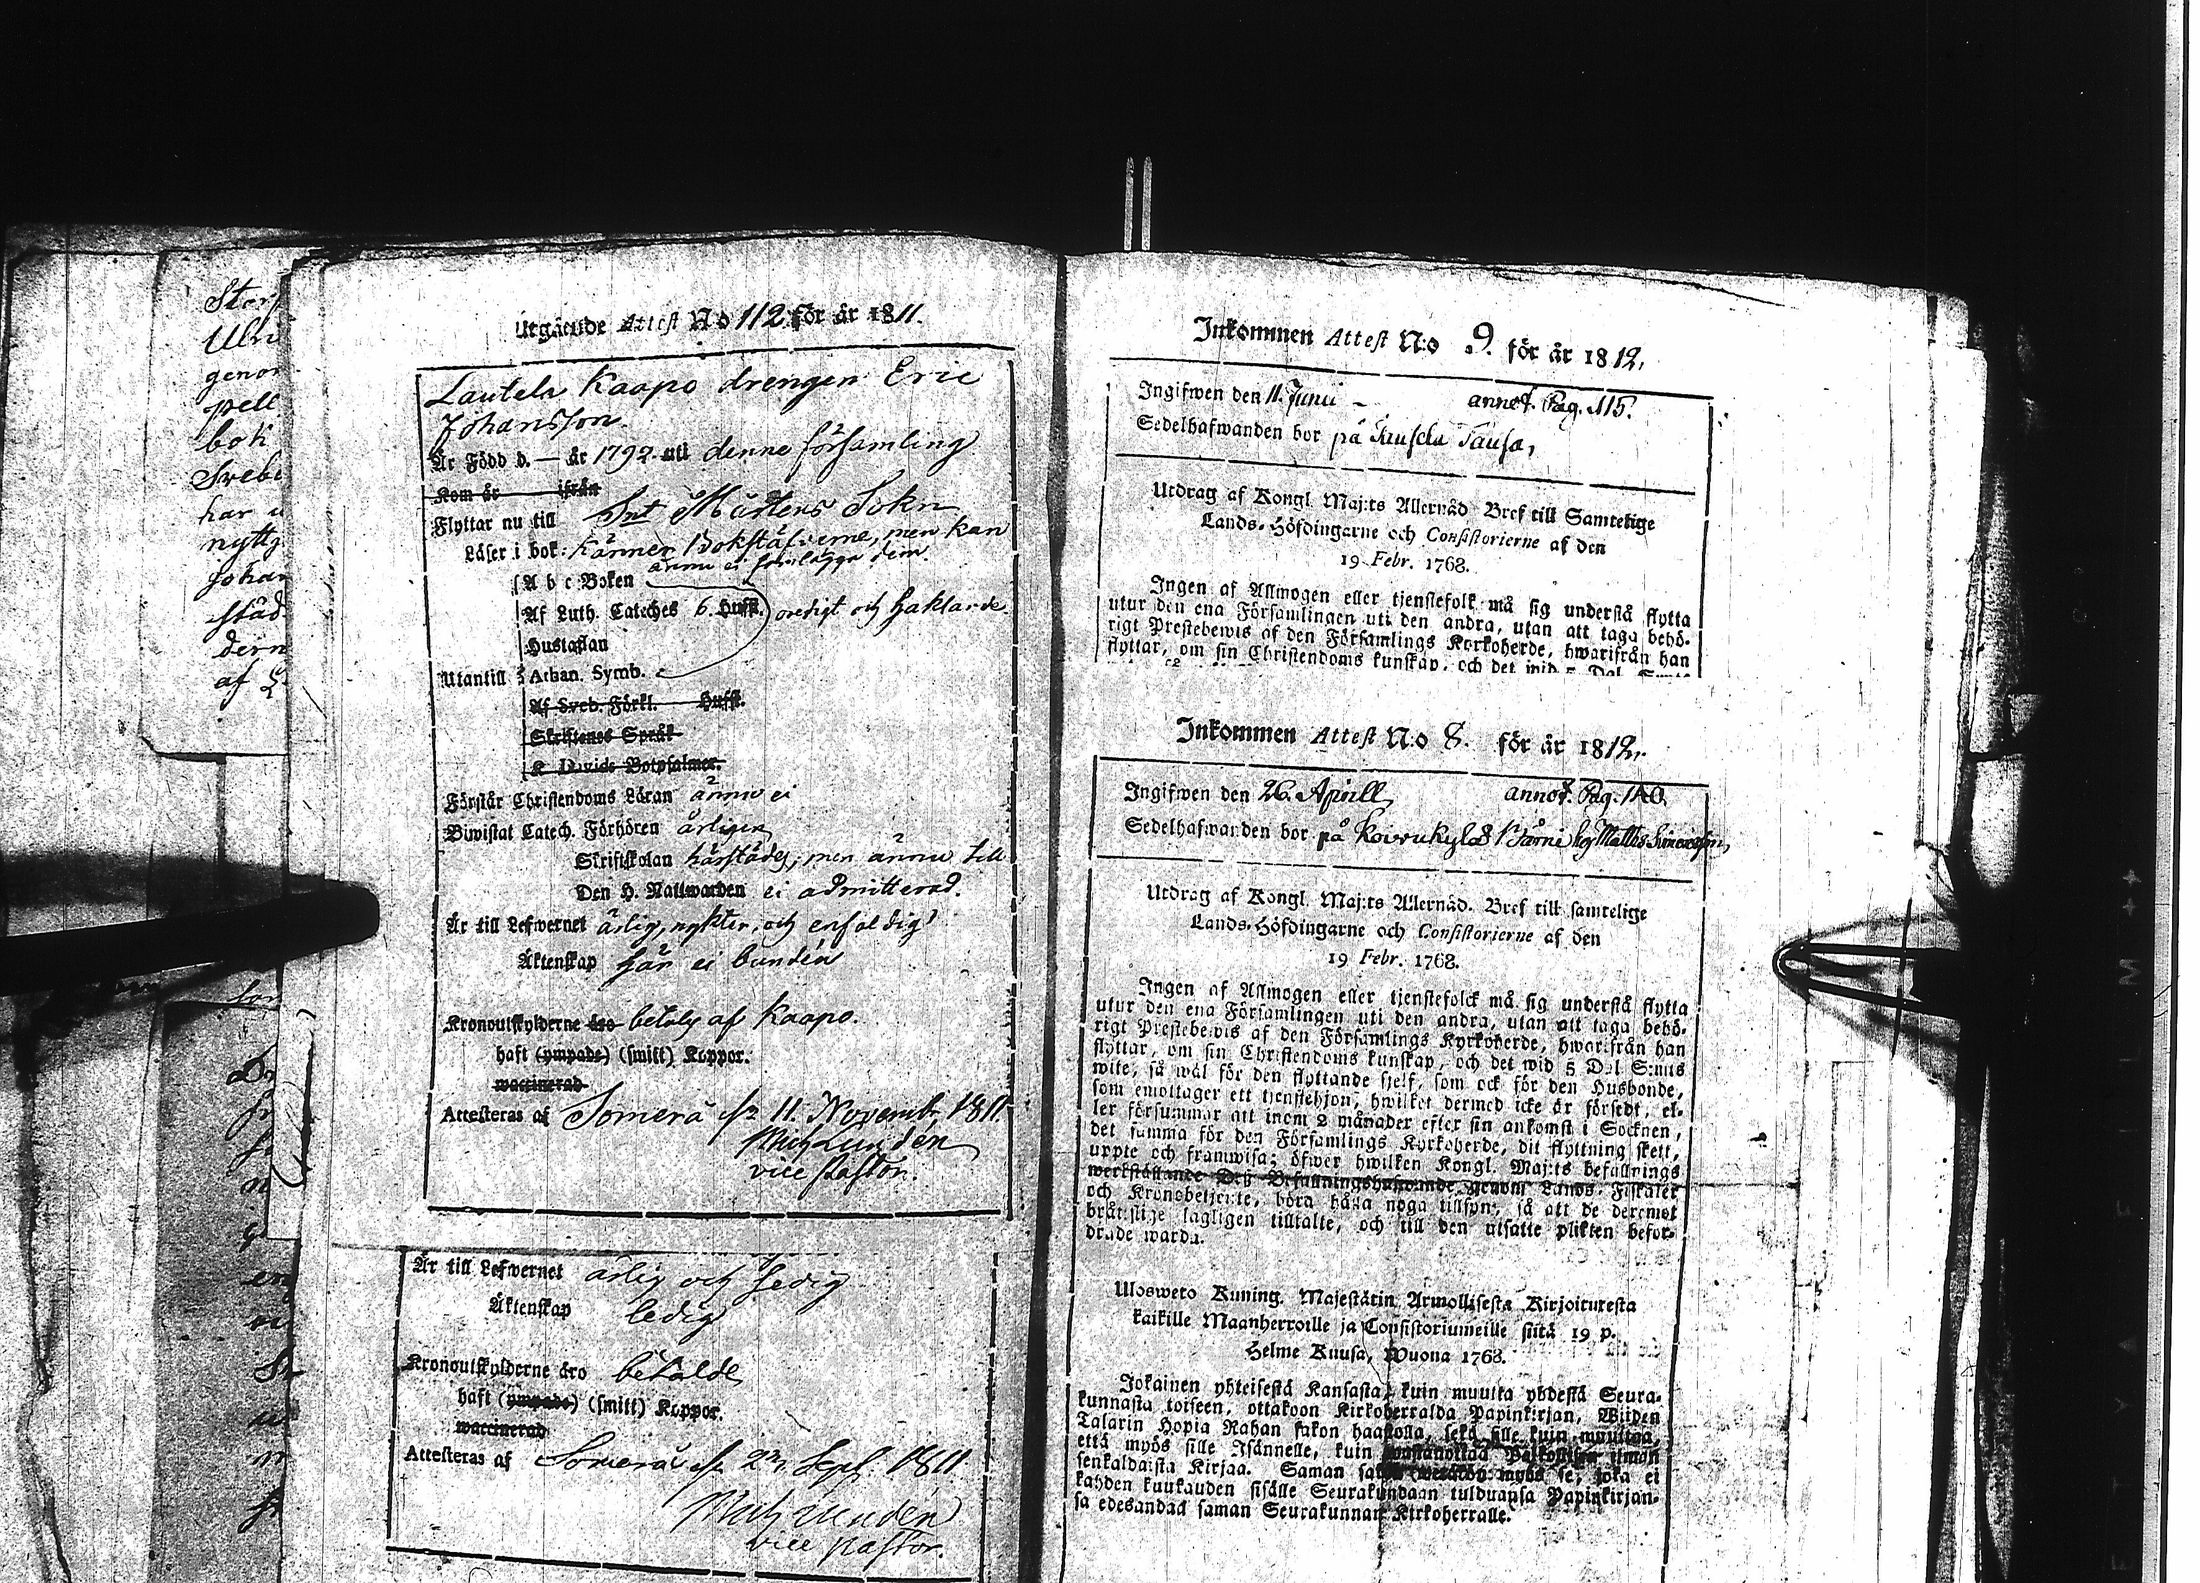 Utgående Attest No 112 för år 1811.
Lautela Kaapo drengen Eric
Johansson
Är Född d. — år 1792 uti denne församling
Kom år ifrån
Flyttar nu till Snt Mårtens Sokn
Läser i bok: Känner Bokstäfverne, men kan
ännu ei sammlägga dem
A b c Boken
Af Luth. Cateches 6. Hufst. oredigt och haklande
Hustaflan
Utantill Athan. Symb.
Af Sveb. Förkl. Hufst.
Skriftenes Språk
K Davids Botpsalmer.
Förstår Christendoms Läran ännu ei
Biwistat Catech. Förhören årligen
Skriftskolan härstädes, men ännu till
Den H. Nattwarden ei admitterad.
Är till Lefwernet ärlig, nykter, och enfaldig
Äktenskap här ei bunden
Kronoutskylderne äro betalas af Kaapo.
haft (ympade) (smitt) Koppor.
waccinerad
Attesteras af Somero 11. Novemb. 1811.
Mich Lundén
vice pastor.
Är till Lefwernet ärlig och sedig
Äktenskap ledig
Kronoutskylderne äro betalde
haft (ympade) (smitt) Koppor.
waccinerad
Attesteras af Somero Sept. 1811
Mich Lundén
vice pastor.
Inkommen Attest N:o 9. för år 1812.
Ingifwen den 11. Junii – annot. Pag. 115.
Sedelhafwanden bor på
Utdrag af Kongl. Maj:ts Allernåd. Bref till Samtelige
Lands-Höfdingarne och Consistorierne af den
19 Febr. 1768.
Ingen af Allmogen eller tjenstefolk må sig understå flytta
utur den ena Församlingen uti den andra, utan att taga behö-
rigt Prestebewis af den Församlings Kyrkoherde, hwarifrån han
flyttar, om sin Christendoms kunskap, och det wid 5 Dal. S:mts
Inkommen Attest N:o 8. för år 1812.
Ingifwen den 26. Aprill annot. Pag. 140.
Sedelhafwanden bor på Koivukylä hos Matts Simonsson,
Utdrag af Kongl. Maj:ts Allernåd. Bref till samtelige
Lands-Höfdingarne och Consistorierne af den
19 Febr. 1768.
Ingen af Allmogen eller tjenstefolck må sig understå flytta
utur den ena Församlingen uti den andra, utan att taga behö-
rigt Prestebewis af den Församlings Kyrkoherde, hwarifrån han
flyttar, om sin Christendoms kunskap, och det wid 5 Dal S:mts
wite, så wäl för den flyttande sjelf, som ock för den Husbonde,
som emottager ett tjenstehjon, hwilket dermed icke är försedt, el-
ler försummar att inom 2 månader efter sin ankomst i Socknen,
det samma för den Församlings Kyrkoherde, dit flyttning skett,
uppte och framwisa; öfwer hwilken Kongl. Maj:ts befallnings
werkställande Deß Befallningshafwande genom Lands-Fiskaler
och Kronobetjente, böra hålla noga tillsyn, så att de deremot
bråtslige lagligen tilltalte, och till den utsatte plikten befor-
drade warda.
Ulosweto Kuning. Majestätin Armollisesta Kirjoituresta
kaikille Maanherroille ja Consistoriumeille siitä 19 p.
Helme Kuusa, Wuona 1768.
Jokainen yhteisestä Kansasta, kuin muutta yhdestä Seura-
kunnasta toiseen, ottakoon Kirkoherralda Papinkirjan, Wiiden
Talarin Hopia Rahan sakon haastolla, sekä sille kuin muuttaa,
että myös sille Isännelle, kuin wastanottaa Palkollisen ilman
senkaldaista Kirjaa. Saman sakon wetäköön myös se, joka ei
kahden kuukauden sisälle Seurakundaan tulduansa Papinkirjan-
sa edesandaa saman Seurakunnan Kirkoherralle.